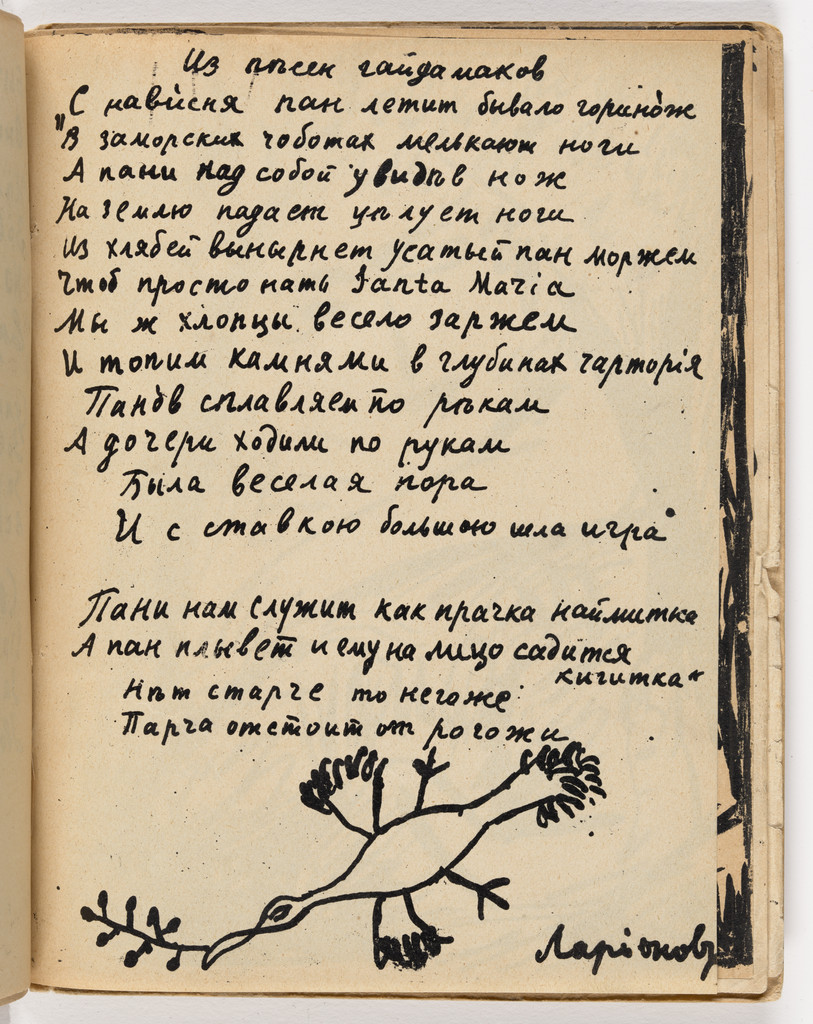 Из пѣсен гайдамаков
„С нависня пан летит бывало горинож
В заморских чоботах мелькают ноги
А пани над собой увидѣв нож
На землю падает цѣлует ноги
Из хлябей вынырнет усатый пан моржем
Чтоб простонать Santa Maria
Мы ж хлопцы весело заржем
И топим камнями в глубинах чарторія
Панов сплавляем по рѣкам
А дочери ходили по рукам
Была веселая пора
И с ставкою большою шла игра
Пани нам служит как прачка наймитка
А пан плывет и ему на лицо садится
кигитка“
Нѣт старче то негоже
Парча отстоит от рогожи
Ларіоновъ